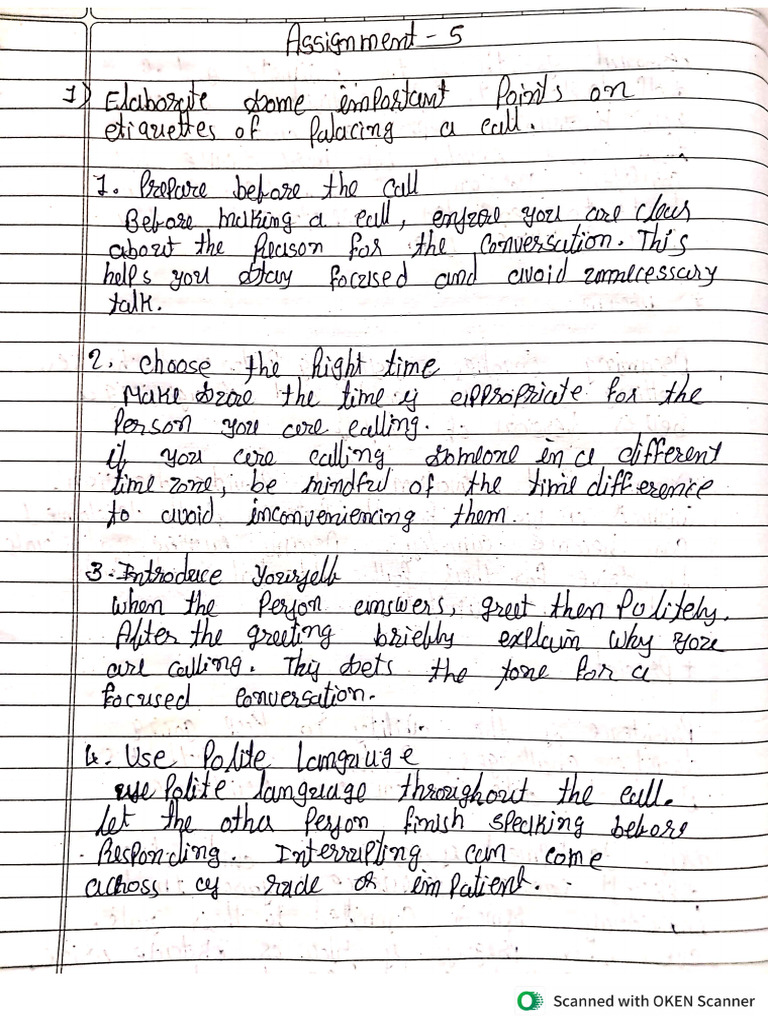 Assignment - 5
1) Elaborate some important Points on
etiquettes of Palacing a call.
1. Prepare before the call
Before making a call, ensure you are clear
about the Reason for the conversation. This
helps you stay focused and avoid unnecessary
talk.
2. choose the Right time
Make sure the time is appropriate for the
Person you are calling.
if you are calling someone in a different
time zone, be mindful of the time difference
to avoid inconveniencing them.
3. Introduce Yourself
when the Person answers, greet them Politely.
After the greeting briefly explain why you
are calling. This sets the tone for a
focused conversation.
4. Use Polite Language
use Polite language throughout the call.
let the other Person finish speaking before
Responding. Interrupting can come
across as rude or impatient.
Scanned with OKEN Scanner